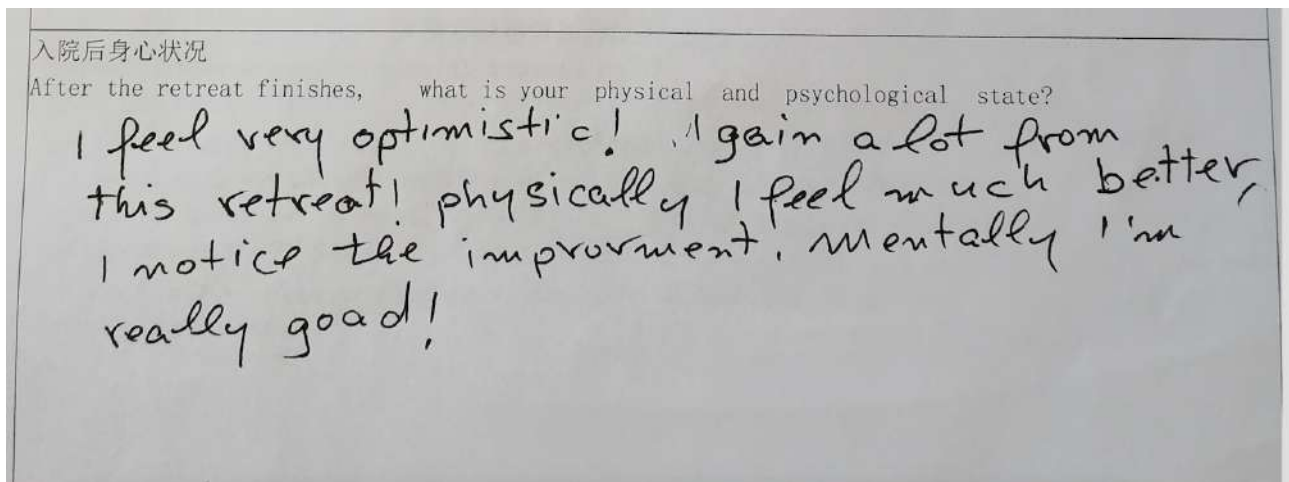 入院后身心状况
After the retreat finishes, what is your physical and psychological state?
I feel very optimistic! I gain a lot from
this retreat! physically I feel much better,
I notice the improvment. Mentally I'm
really goad!